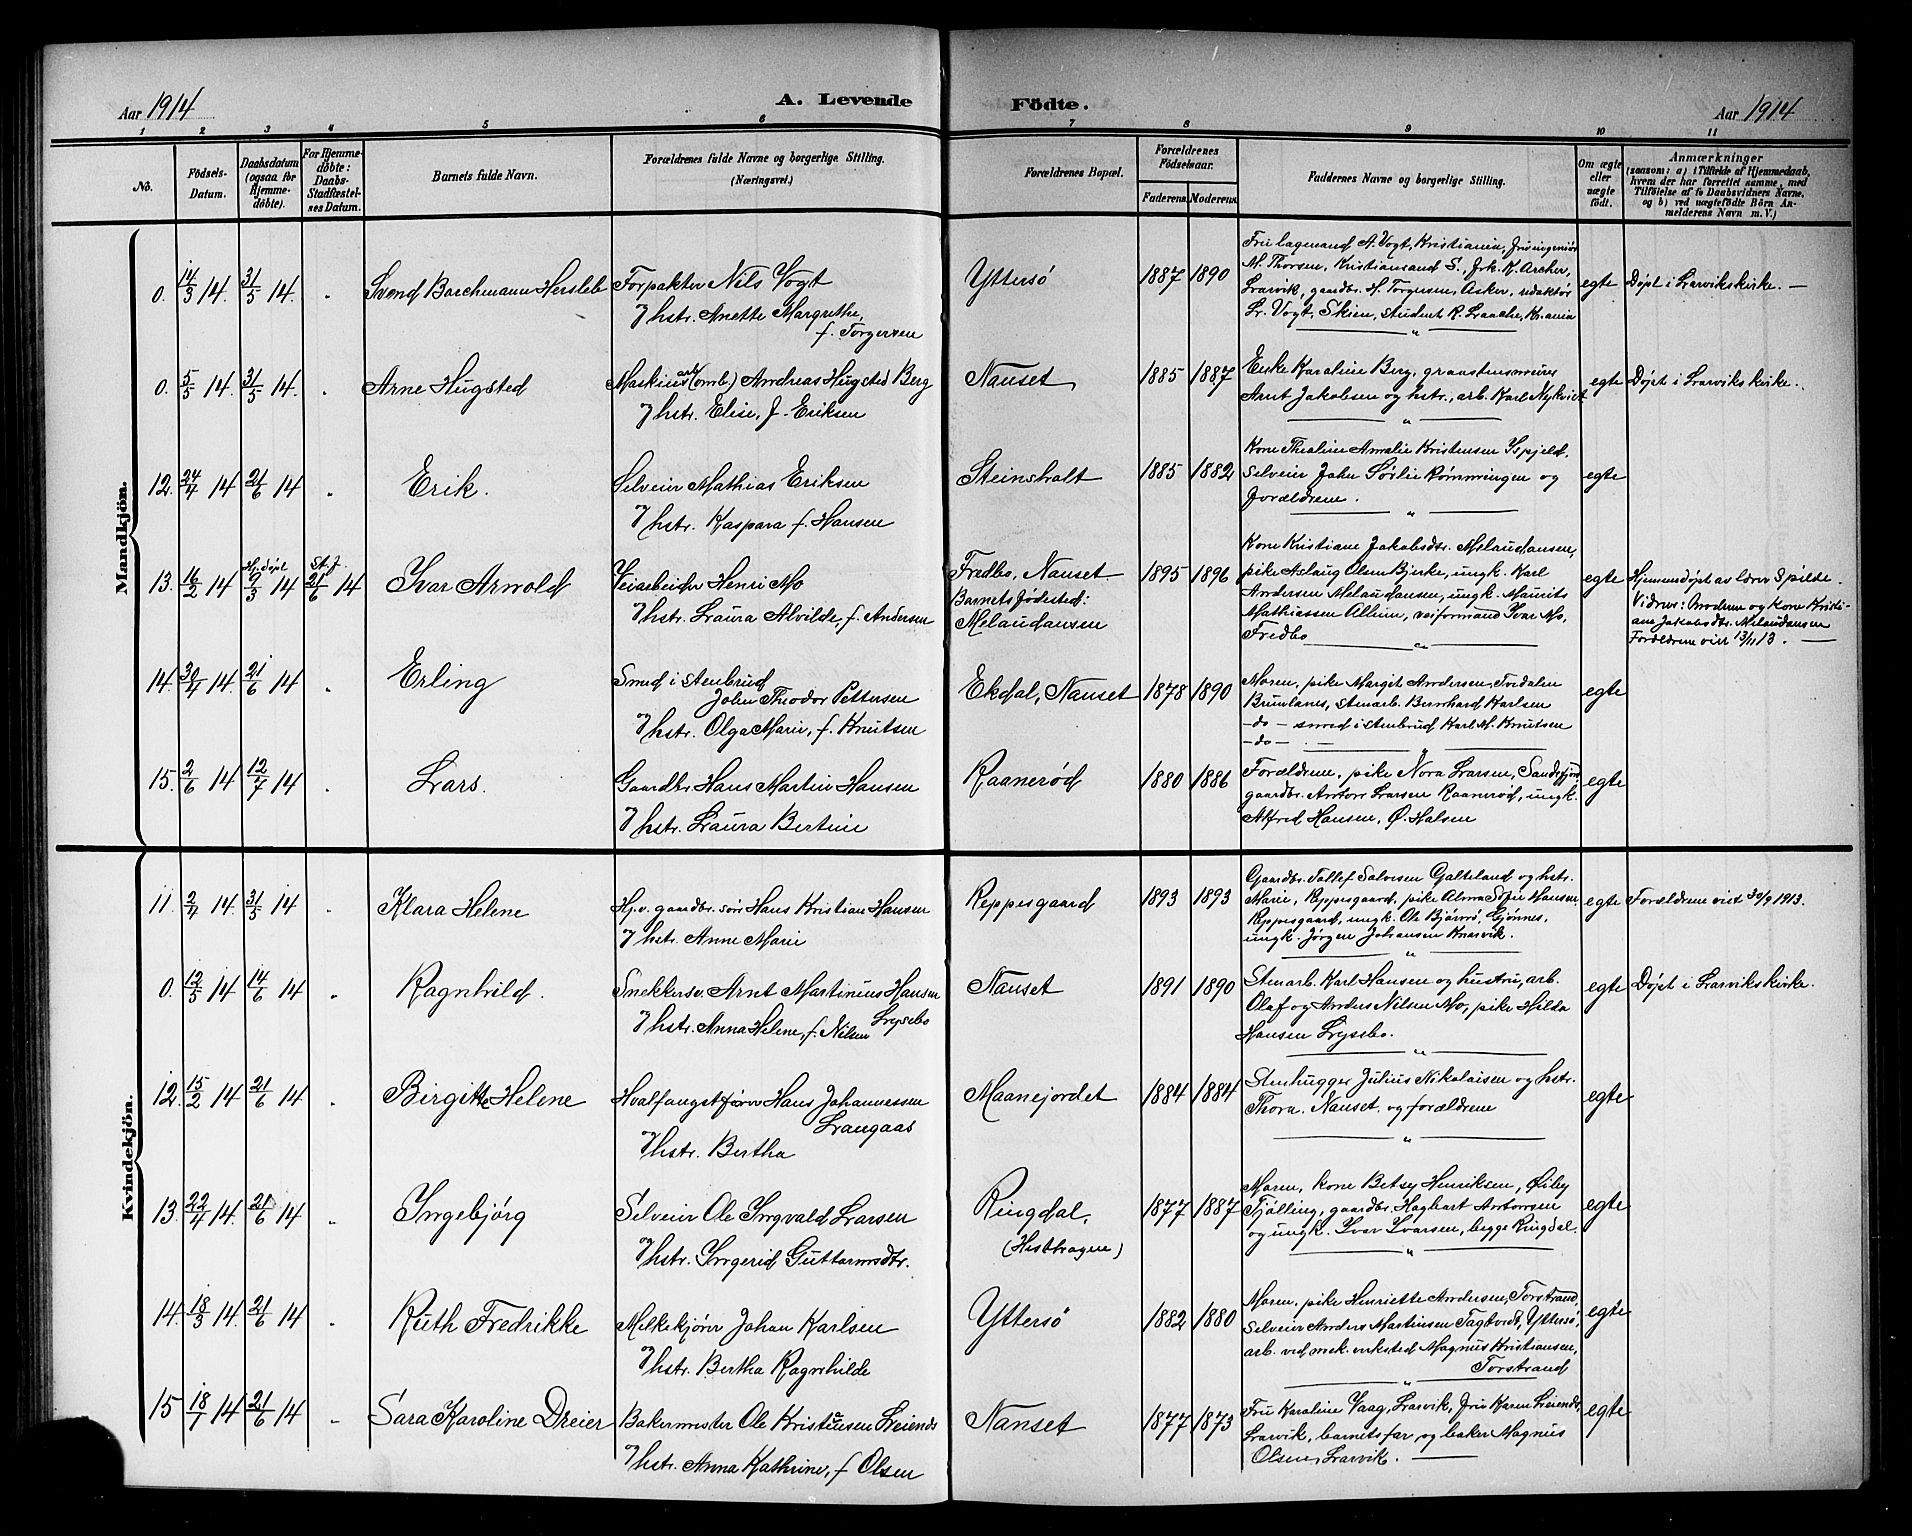 Aar 1914
A. Levende
Födte.
Aar 1914
1 2 3 4 5 6 7 8 9 10 11
No.
Födsels-
Datum.
Daabsdatum
(ogsaa for
Hjemme-
döbte).
For Hjemme-
döbte:
Daabs-
Stadfæstel-
ses Datum.
Barnets fulde Navn.
Forældrenes fulde Navne og borgerlige Stilling.
(Næringsvei.)
Forældrenes Bopæl.
Forældrenes
Födselsaar.
Faderens. Moderens.
Faddernes Navne og borgerlige Stilling.
Om ægte
eller
uægte
födt.
Anmærkninger
(saasom: a) i Tilfælde af Hjemmedaab,
hvem der har forrettet samme, med
Tilföielse af to Daabsvidners Navne,
og b) ved uægtefödte Börn An-
melderens Navn m. V.)
Mandkjön.
0. 14/3 14. 31/5 14. „ Svend Barchmann Hersleb
Forpakter Nils Vogt
& hstr. Anette Margrethe,
f. Torgersen
Yttersø 1887 1890
Fru lagmand A. Vogt, Kristiania, fru ingeniør
M. Thorsen, Kristiansand S., frk. K. Archer,
Larvik, gaardbr. H. Torgersen, Asker, redaktør
Lr. Vogt, Skien, student R. Laache, Kr.ania
egte Døpt i Larvikskirke. —
0. 5/5 14. 31/5 14. „ Arne Hugsted
Maskinarb. (omb.) Andreas Hugsted Berg
& hstr. Elise, f. Eriksen
Nanset 1885 1887
Enke Karoline Berg, graastensmurer
Arnt Jakobsen og hstr., arb. Karl Nykvist
egte Døpt i Larvikskirke.
12. 24/4 14 21/6 14 „ Erik.
Selveier Mathias Eriksen
& hstr. Kaspara f. Hansen
Steinsholt 1885 1882
Kone Thealine Amalie Kristensen Ispjeld.
Selveier John Sørlie Rømmingen og
Forældrene.
egte
13. 16/2 14 Hj. døpt 9/3 14 St. f. 21/6 14 Ivar Arnold
Veiarbeider Henri Mo
& hstr. Laura Alvilde, f. Andersen
Fredbo, Nanset
Barnets fødested:
Melaudansen
1895 1896
Kone Kristiane Jakobsdtr. Melaudansen,
pike Aslaug Olsen Bjerke, ungk. Karl
Andersen Melaudansen, ungk. Maurits
Mathiassen Allum, veiformand Ivar Mo,
Fredbo
egte
Hjemmedøpt av lærer Spilde.
Vidner: Moderen og kone Kristi-
ane Jakobsdtr. Melaudansen
Forældrene viet 13/11 13. —
14. 30/4 14. 21/6 14 „ Erling
Smed i stenbrud
John Theodor Pettersen
& hstr. Olga Marie, f. Knutsen
Ekdal, Nanset 1878 1890
Moren, pike Margit Andersen, Tvedalen
Brunlanes, Stenarb. Bernhard Karlsen
—do— smed i Stenbrud Karl M. Knutsen
—do— . —
egte
15. 2/6 14 12/7 14 „ Lars.
Gaardbr. Hans Martin Hansen
& hstr. Laura Bertine
Raanerød 1880 1886
Forældrene, pike Nora Larsen, Sandefjord
gaardbr. Anton Larsen Raanerød, ungk.
Alfred Hansen, Ø. Halsen
egte
Kvindekjön.
11. 2/4 14. 31/5 14 „ Klara Helene
Hj.v. gaardbr. søn Hans Kristian Hansen
& hstr. Anne Marie
Reppesgaard 1893 1893
Gaardbr. Tallef Salvesen Galteland og hstr.
Marie, Reppesgaard, pike Alma Sofie Hansen
Reppesgaard, ungk. Ole Bjørnø, Gjønnes,
ungk. Jørgen Johansen Knarvik.
egte Forældrene viet 30/9 1913.
0. 12/5 14 14/6 14 „ Ragnhild.
Snekkersv. Arnt Martinius Hansen
Lysebo
& hstr. Anna Helene, f. Nilsen
Nanset 1891 1890
Stenarb. Karl Hansen og hustru, arb.
Olaf og Anders Nilsen Mo, pike Hilda
Hansen Lysebo.
egte Døpt i Larvikskirke.
12. 15/2 14 21/6 14 „ Birgitte Helene
Hvalfangstfører Hans Johannessen
Langaas
& hstr. Bertha
Maanejordet 1884 1884
Stenhugger Julius Nikolaisen og hstr.
Thora. Nanset. og forældrene
egte
13. 22/4 14. 21/6 14 „ Ingebjørg
Selveier Ole Ingvald Larsen
& hstr. Ingerid Guttormsdtr.
Ringdal,
1877 1887
Moren, kone Betsy Henriksen, Øiby
Tjølling, gaardbr. Hagbart Antonsen
og ungk. Ivar Ivarsen, begge Ringdal.
egte
14. 18/3 14. 21/6 14 „ Ruth Fredrikke
Melkekjører Johan Karlsen
& hstr. Bertha Ragnhilde
Yttersø 1882 1880
Moren, pike Henriette Andersen, Torstrand,
Selveier Anders Martinsen Tagtvedt, Yttersø,
arb. ved mek. verksted Magnus Kristiansen,
Torstrand
egte
15 18/1 14 21/6 14 „ Sara Karoline Dreier
Bakermester Ole Kristiansen Leiendø
& hstr. Anna Kathrine, f. Olsen
Nanset 1877 1873
Fru Karoline Vaag, Larvik, fru Karen Leiendø,
Larvik, barnets far og baker Magnus
Olsen, Larvik. —
egte